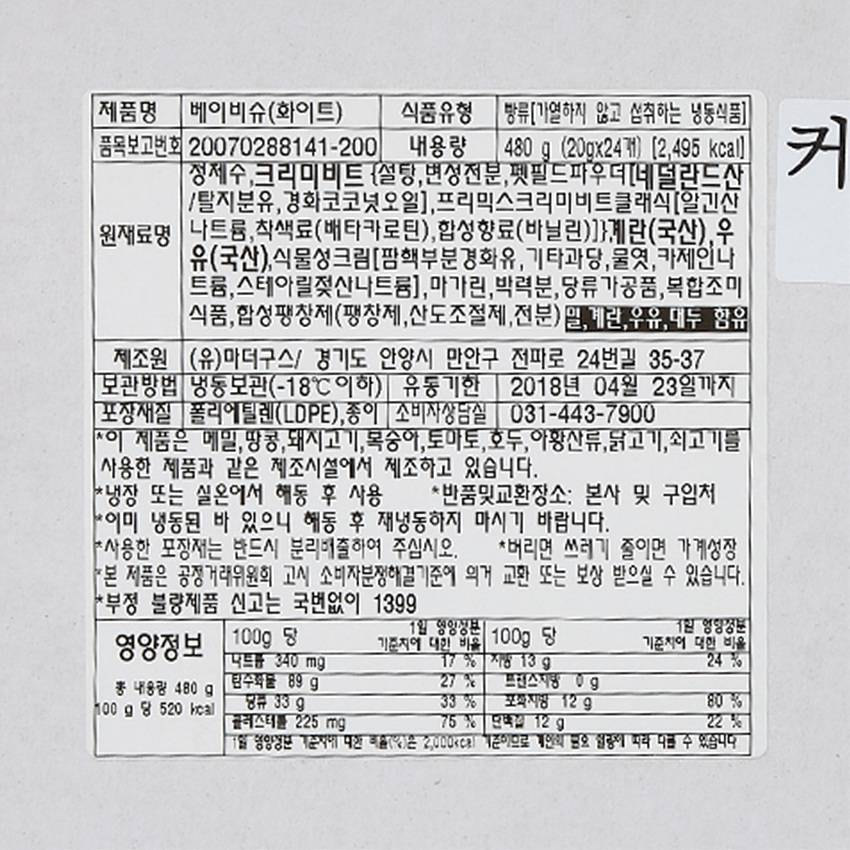 제품명 베이비슈(화이트) 식품유형 빵류[가열하지 않고 섭취하는 냉동식품]
품목보고번호 20070288141-200 내용량 480 g (20gx24개) [2,495 kcal]
원재료명
정제수,크리미비트 {설탕,변성전분,펫필드파우더[네덜란드산
/탈지분유,경화코코넛오일],프리믹스크리미비트클래식[알긴산
나트륨,착색료(배타카로틴),합성향료(바닐린)]},계란(국산),우
유(국산),식물성크림[팜핵부분경화유,기타과당,물엿,카제인나
트륨,스테아릴젖산나트륨],마가린,박력분,당류가공품,복합조미
식품,합성팽창제(팽창제,산도조절제,전분) 밀,계란,우유,대두 함유
제조원 (유)마더구스/ 경기도 안양시 만안구 전파로 24번길 35-37
보관방법 냉동보관(-18℃이하) 유통기한 2018년 04월 23일까지
포장재질 폴리에틸렌(LDPE),종이 소비자상담실 031-443-7900
*이 제품은 메밀,땅콩,돼지고기,복숭아,토마토,호두,아황산류,닭고기,쇠고기를
사용한 제품과 같은 제조시설에서 제조하고 있습니다.
*냉장 또는 실온에서 해동 후 사용 *반품및교환장소: 본사 및 구입처
*이미 냉동된 바 있으니 해동 후 재냉동하지 마시기 바랍니다.
*사용한 포장재는 반드시 분리배출하여 주십시오. *버리면 쓰레기 줄이면 가계성장
*본 제품은 공정거래위원회 고시 소비자분쟁해결기준에 의거 교환 또는 보상 받으실 수 있습니다.
*부정 불량제품 신고는 국번없이 1399
영양정보
총 내용량 480 g
100 g 당 520 kcal
100g 당 1일 영양성분 기준치에 대한 비율 100g 당 1일 영양성분 기준치에 대한 비율
나트륨 340 mg 17 % 지방 13 g 24 %
탄수화물 89 g 27 % 트랜스지방 0 g
당류 33 g 33 % 포화지방 12 g 80 %
콜레스테롤 225 mg 75 % 단백질 12 g 22 %
1일 영양성분 기준치에 대한 비율(%)은 2,000kcal 기준이므로 개인의 필요 열량에 따라 다를 수 있습니다
커